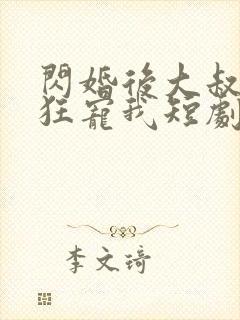 閃婚後大叔
狂寵我短劇
李文琦